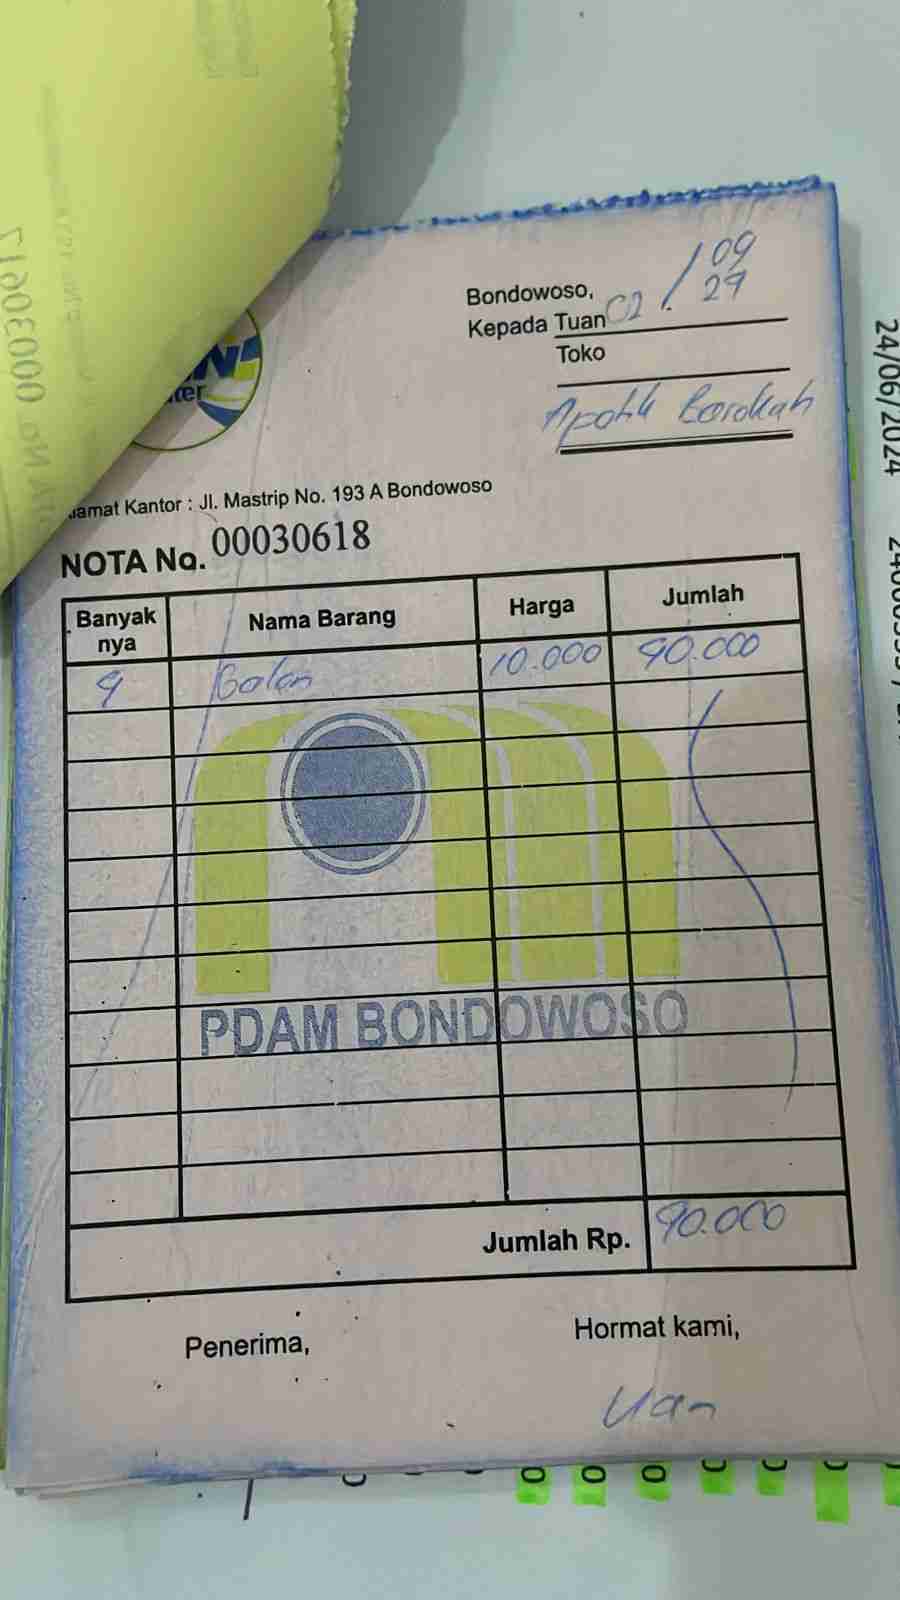 Bondowoso, 02 / 09
29
Kepada Tuan
Toko
Apotik Barokah
Alamat Kantor : Jl. Mastrip No. 193 A Bondowoso
NOTA No. 00030618
Banyak nya Nama Barang Harga Jumlah
9 Galon 10.000 90.000
PDAM BONDOWOSO
Jumlah Rp. 90.000
Penerima, Hormat kami,
24/06/2024